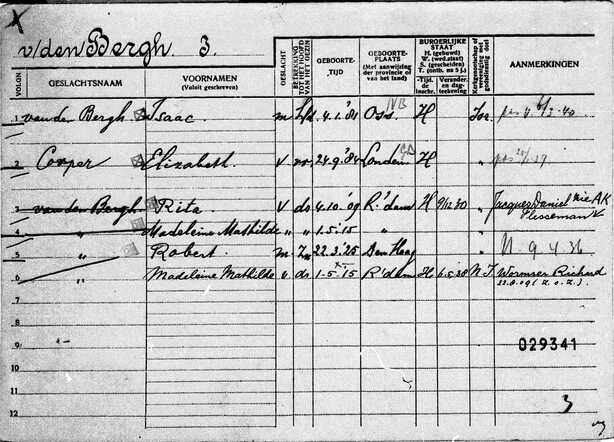 v/den Bergh J.
VOLGN.
GESLACHTSNAAM
VOORNAMEN
(Voluit geschreven)
GESLACHT
BETREKKING TOT HET HOOFD VAN HET GEZIN
GEBOORTE-TIJD
GEBOORTE-PLAATS
(Met aanwijzing der provincie of van het land)
BURGERLIJKE STAAT
H. (gehuwd)
W. (wed.staat)
S. (gescheiden)
T. (ontb. na 5 j.)
-Tijd. de inschr.
Verander. en dag-teekening
Kerkgenootschap of vereeniging met godsdienstig doel
AANMERKINGEN
1 van den Bergh Isaac m hfd 4.1.'81 Oss H
2 Cooper Elizabeth v vr 24.9.'84 Londen H "
3 van den Bergh Rita v ds 4.10.'09 R'dam H 9/12 30 " Jacques Daniel
Flesseman
4 " Madeleine Mathilde " " 1.5.'15 " "
5 " Robert m zn 22.3.'25 Den Haag " 9.4.36
6 Madeleine Mathilde v. ds 1-5-'15 R'dam H N.I. Wormser Richard
7
8
9
029341
10
11
12
3